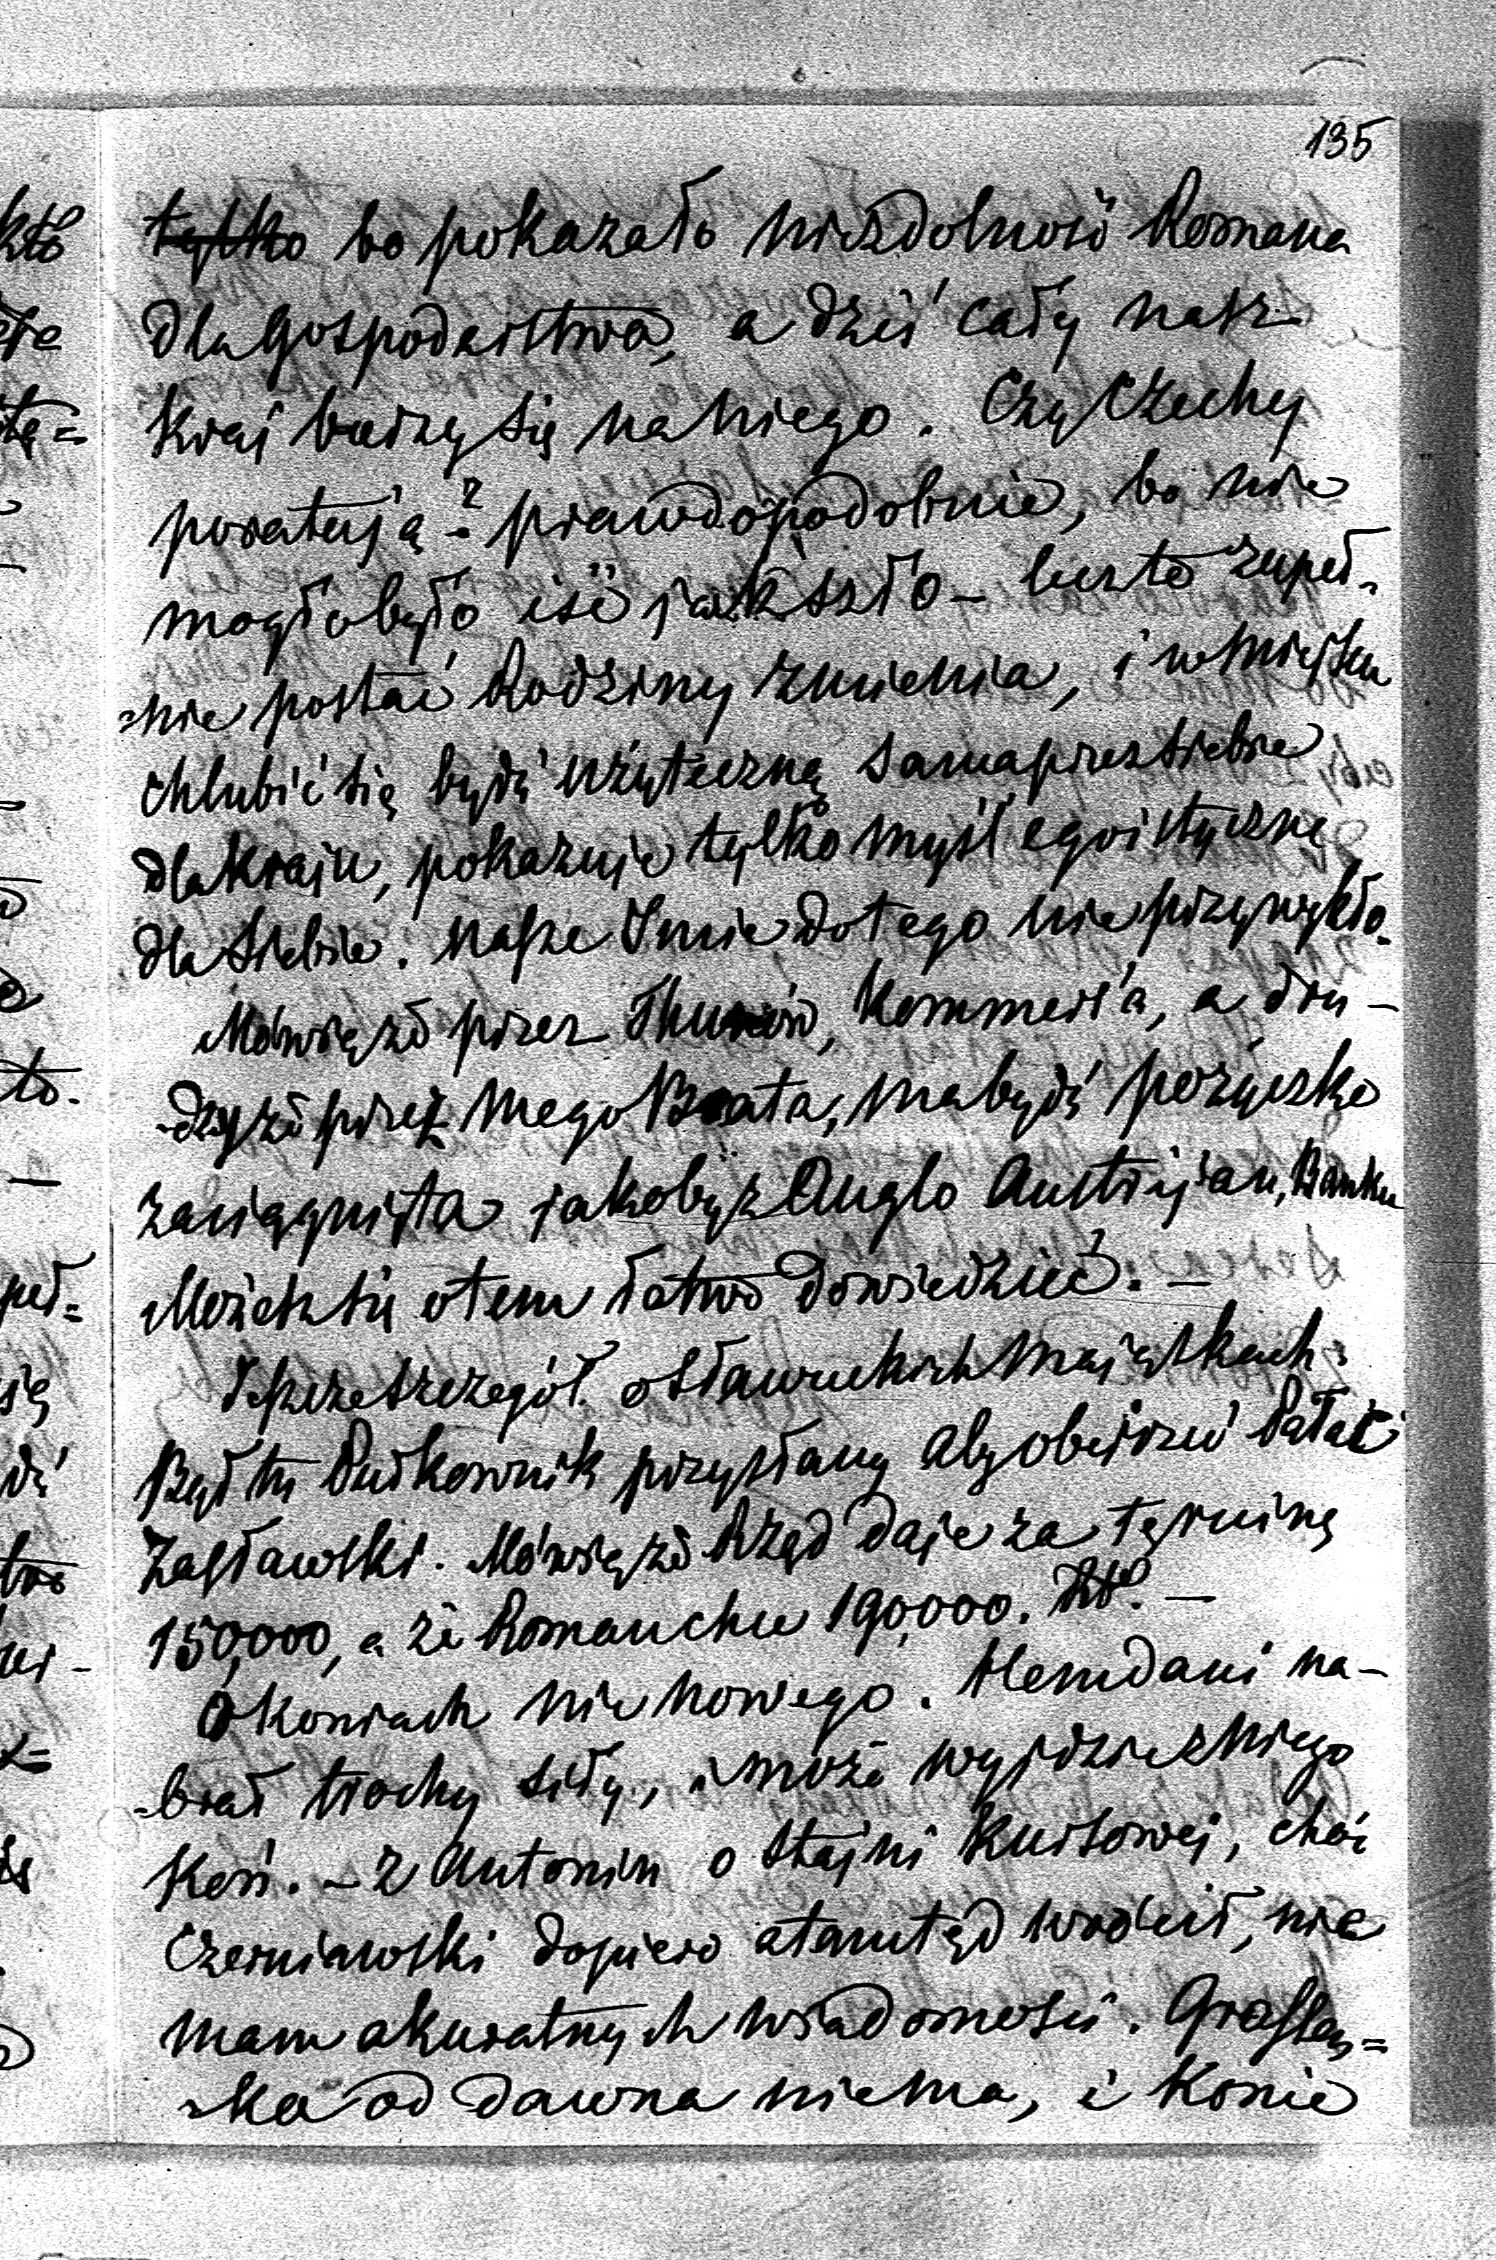 135
tylko bo pokazało niezdolność Romana
dla Gospodarstwa, a dziś cały nasz
Kraj burzy się na niego. Czy Czechy
poratują? prawdopodobnie, bo nie
mogło było iść jak szło – lecz to zupeł-
-nie postać Rodziny zmienia, i w miejscu
chlubić się być użyteczną sama przez siebie
dla Kraju, pokazuje tylko myśl egoistyczną
dla siebie. Nasze Imie do tego nie przywykło.
Mówią że przez Kommers'a, a dru-
-dzy że przez mego Brata, ma być pożyczka
zaciągnięta jakoby z Anglo Austryjan, Banku
Możesz się o tem łatwo dowiedzieć. –
Jeszcze szczegół o Sławuckich majątkach.
Był tu Pułkownik przysłany aby obejrzeć Pałac
Zasławski. Mówią że Rząd daje za tę ruinę
150,000, a że Roman chce 190,000. –
O Koniach nic nowego. Hemdani na-
-brał trochę siły, i może wyjdzie z niego
Koń. – Z Antonin o Stajni Kursowej, choć
Czerniawski dopiero stamtąd wrócił, nie
mam akuratnych wiadomości.
-ka od dawna niema, i Konie